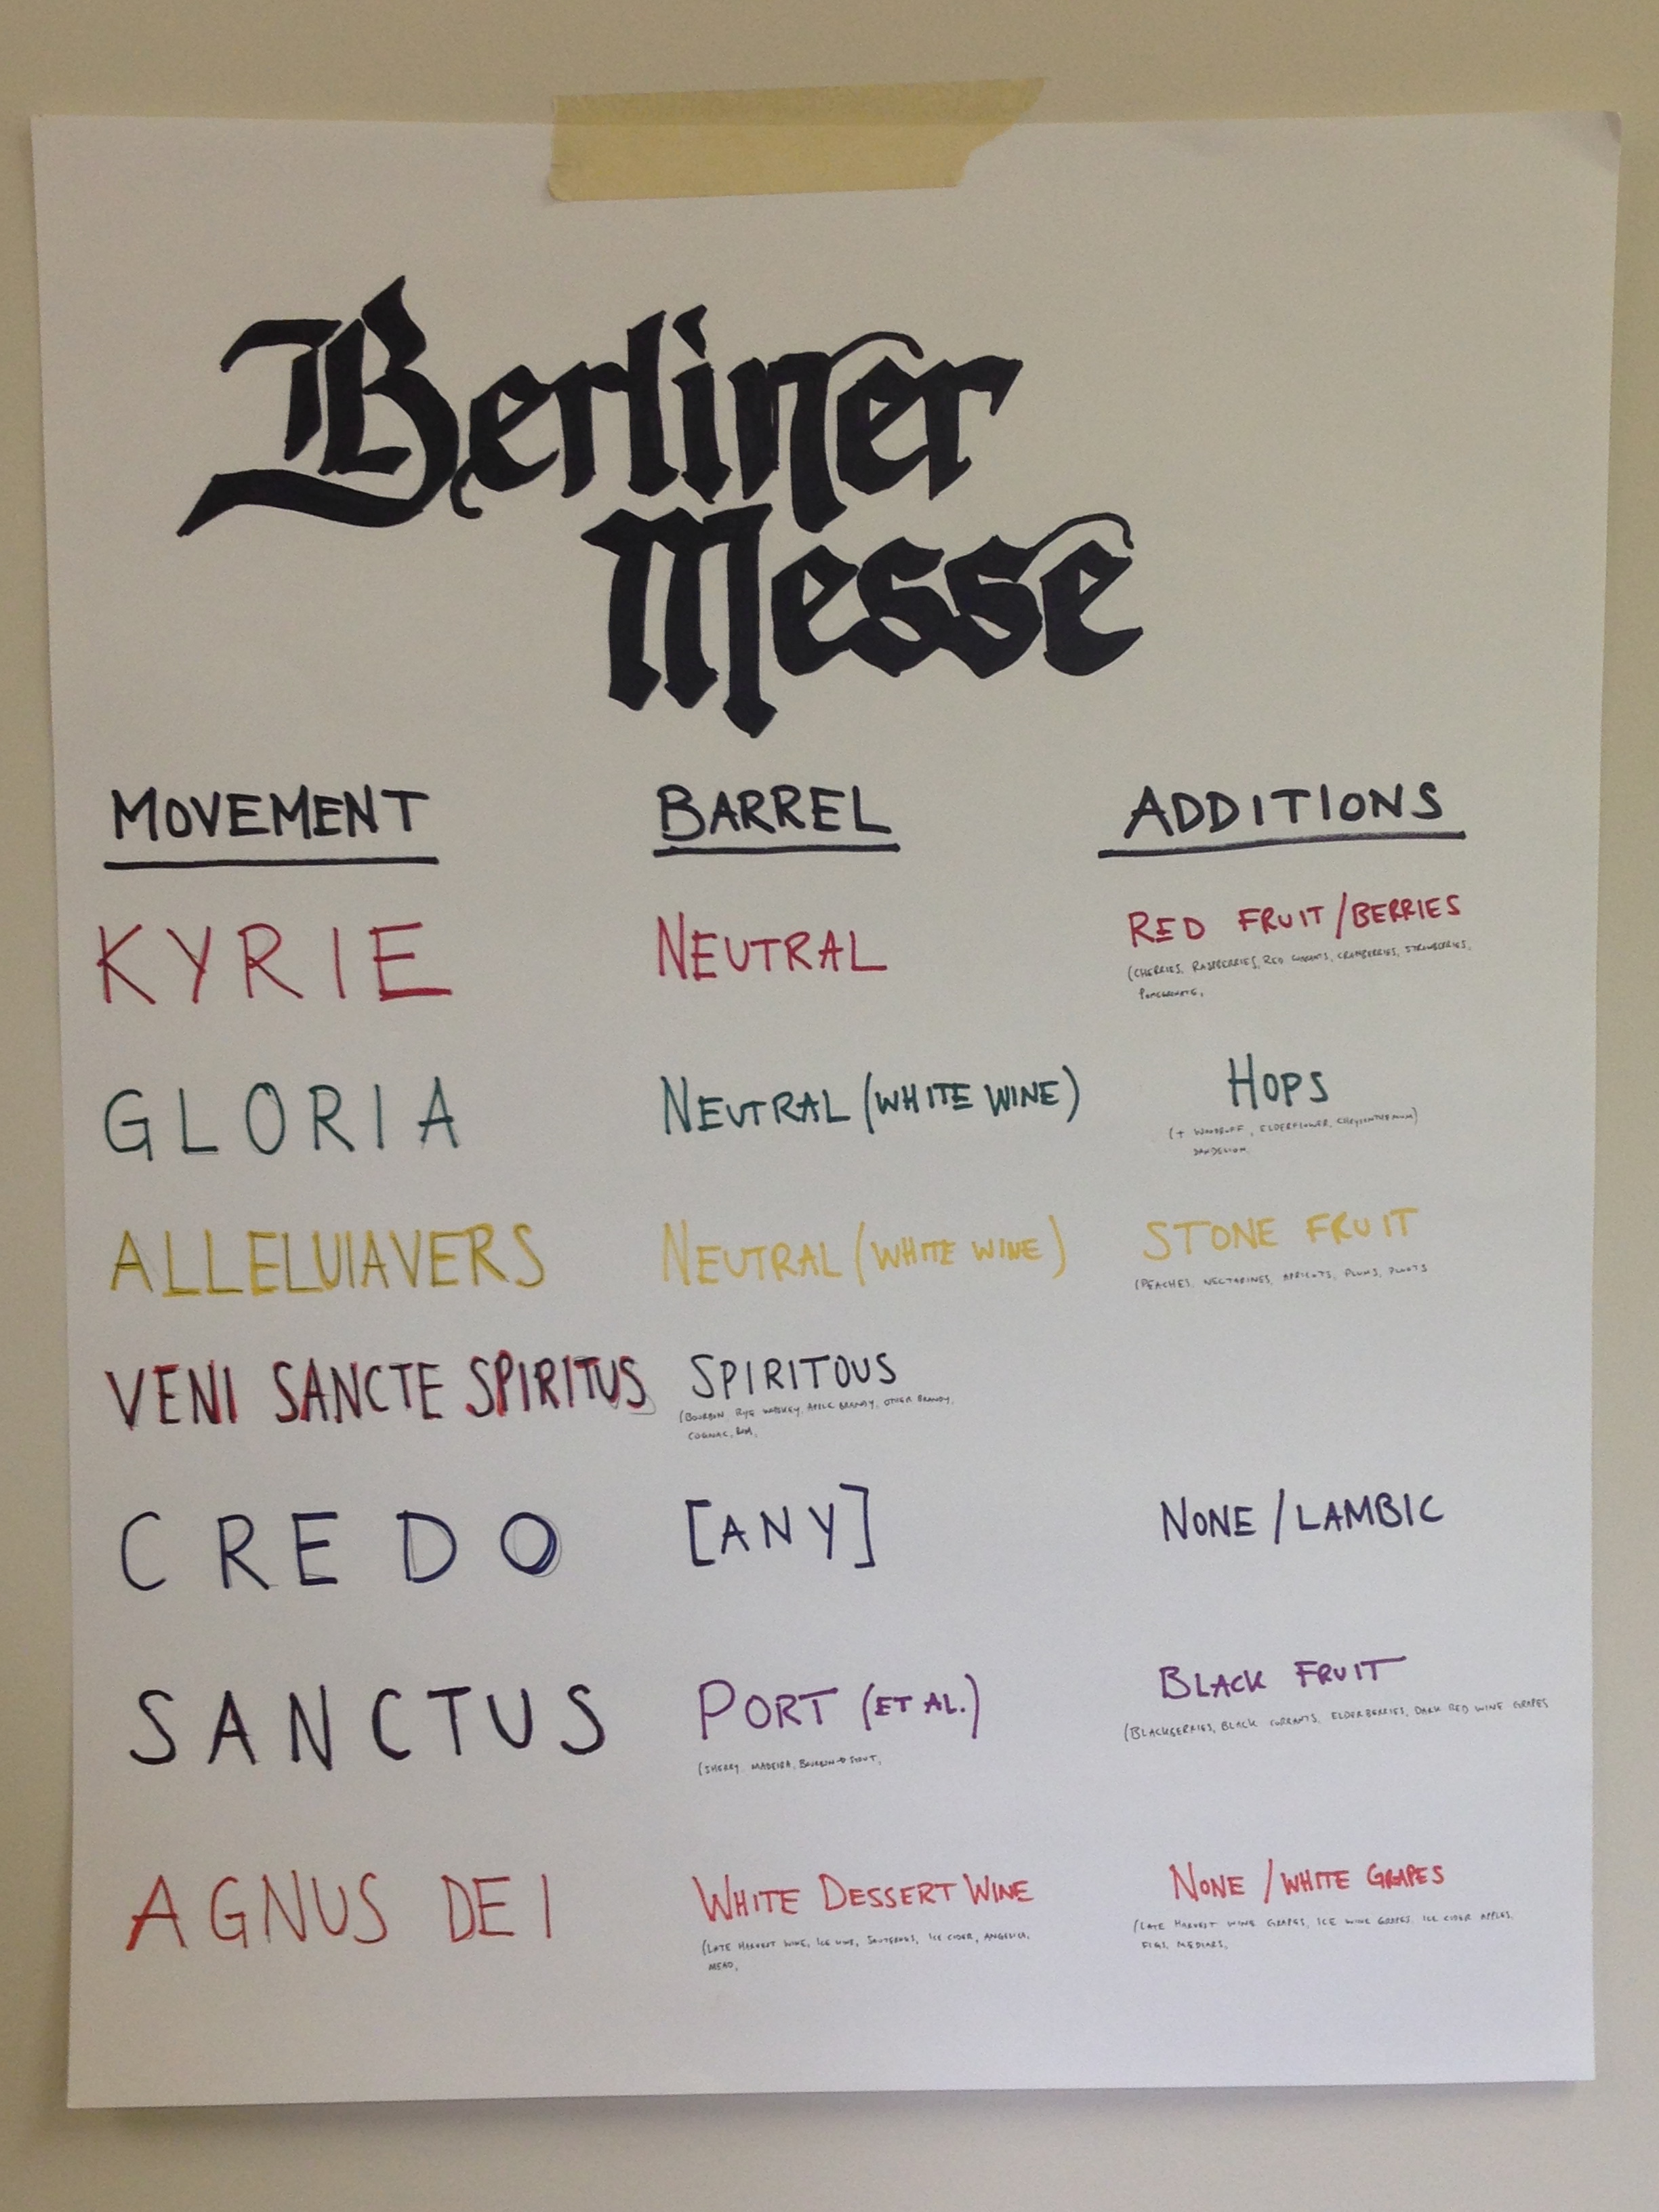 Berliner
Messe
MOVEMENT BARREL ADDITIONS
KYRIE NEUTRAL RED FRUIT/BERRIES
(CHERRIES, RASPBERRIES, RED CURRANTS, CRANBERRIES, STRAWBERRIES,
POMEGRANATE,
GLORIA NEUTRAL (WHITE WINE) HOPS
(+ WOODRUFF, ELDERFLOWER, CHRYSANTHEMUM)
DANDELION,
ALLELUIAVERS NEUTRAL (WHITE WINE) STONE FRUIT
(PEACHES, NECTARINES, APRICOTS, PLUMS, PLUOTS
VENI SANCTE SPIRITUS SPIRITOUS
(BOURBON, RYE WHISKEY, APPLE BRANDY, OTHER BRANDY,
COGNAC, RUM,
CREDO [ANY] NONE/LAMBIC
SANCTUS PORT (ET AL.) BLACK FRUIT
(SHERRY, MADEIRA, BOURBON→STOUT, (BLACKBERRIES, BLACK CURRANTS, ELDERBERRIES, DARK RED WINE GRAPES
AGNUS DEI WHITE DESSERT WINE NONE/WHITE GRAPES
(LATE HARVEST WINE, ICE WINE, SAUTERNES, ICE CIDER, ANGELICA, (LATE HARVEST WINE GRAPES, ICE WINE GRAPES, ICE CIDER APPLES,
MEAD, FIGS, MEDLARS,